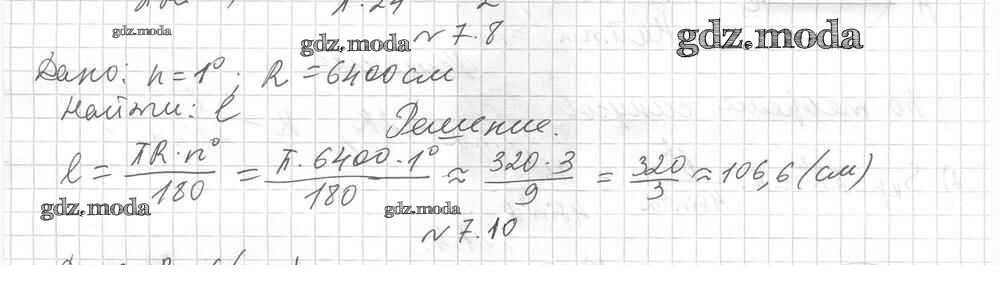 gdz.moda
gdz.moda
gdz.moda
№ 7.8
Дано: n = 1°; R = 6400 см
Найти: l
Решение.
l = πR·n°/180 = π·6400·1°/180 ≈ 320·3/9 = 320/3 ≈ 106,6 (см)
gdz.moda
gdz.moda
№ 7.10